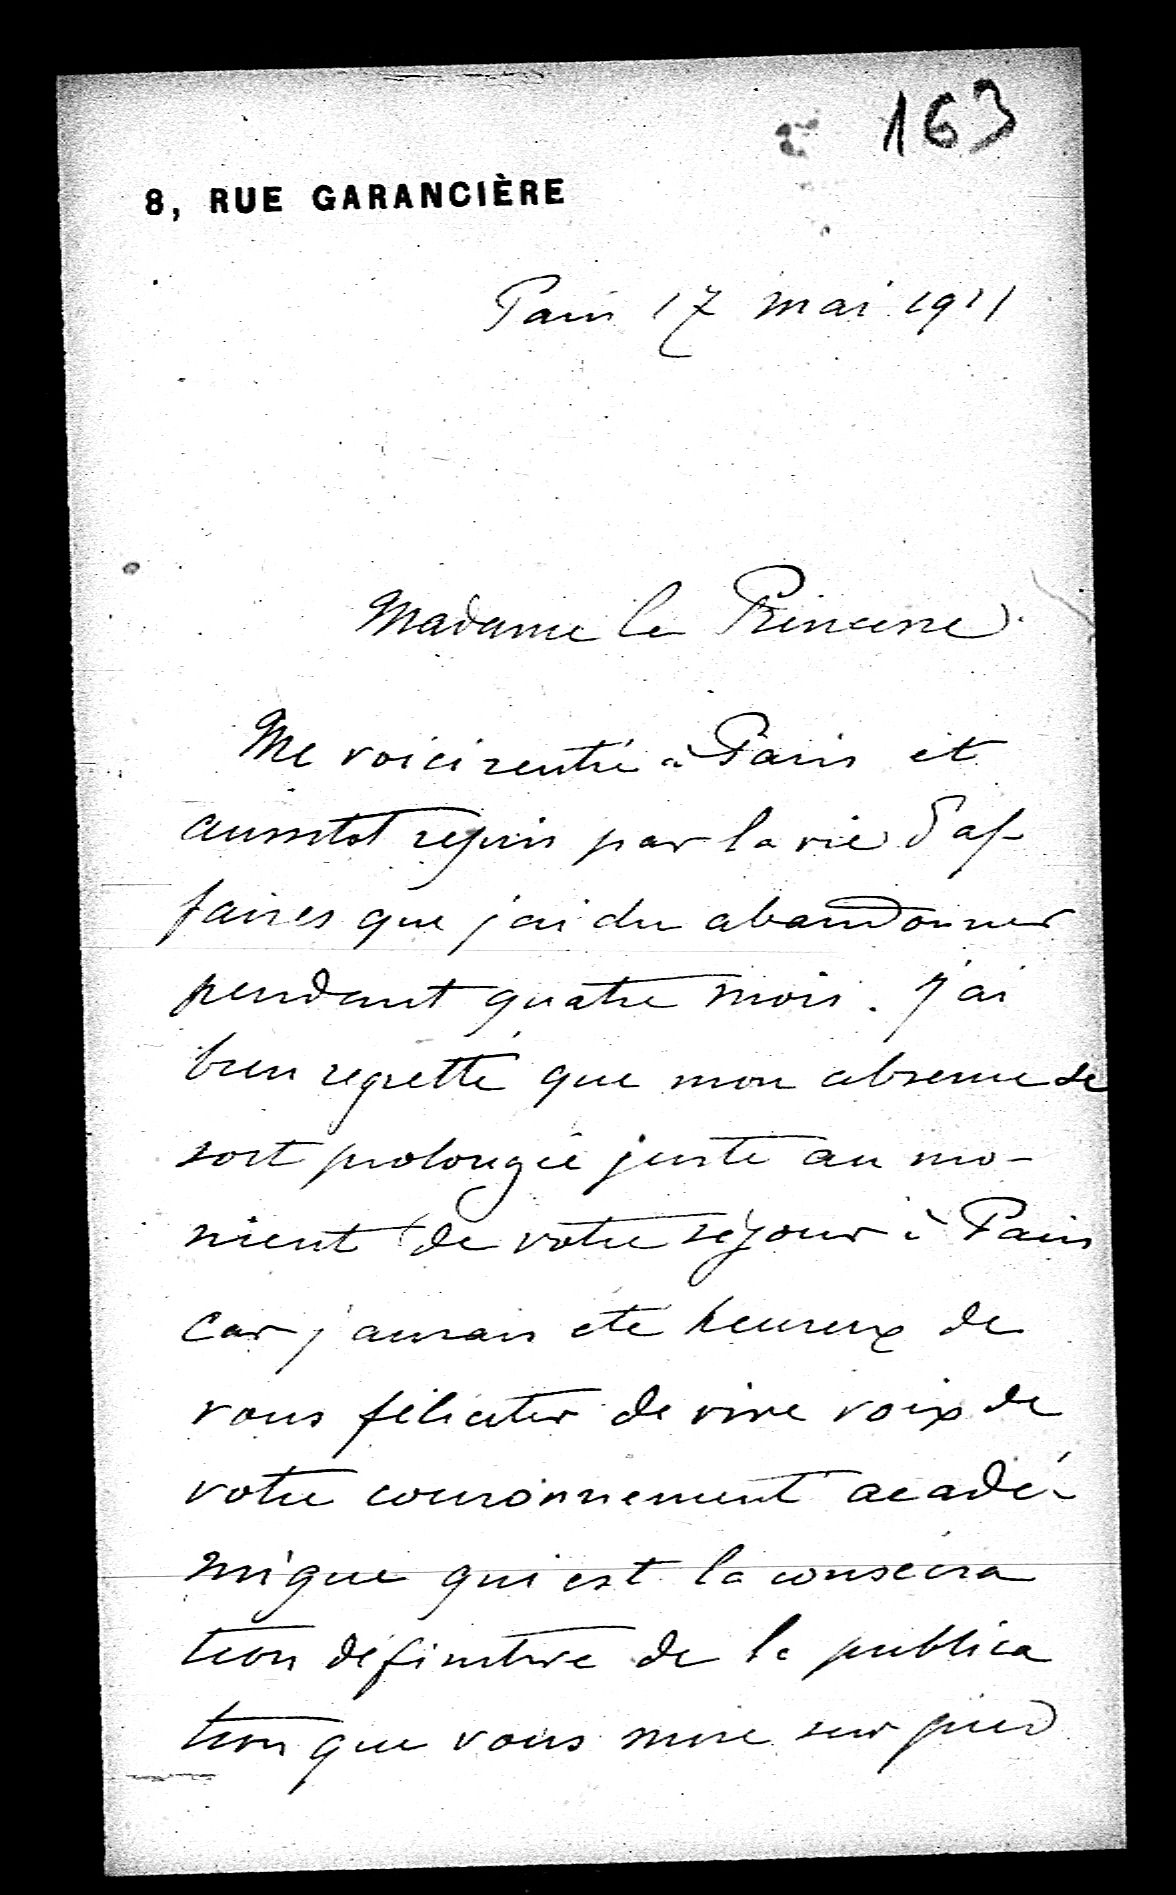 163
8, RUE GARANCIÈRE
Paris 17 mai 1911
Madame la Princesse
Me voici rentré à Paris et
aussitôt repris par la vie d'af-
faires que j'ai du abandonner
pendant quatre mois. J'ai
bien regretté que mon absence se
soit prolongée juste au mo-
ment de votre séjour à Paris
car j'aurais été heureux de
vous féliciter de vive voix de
votre couronnement acadé-
mique qui est la consécra
tion définitive de la publica
tion que vous mise sur pied